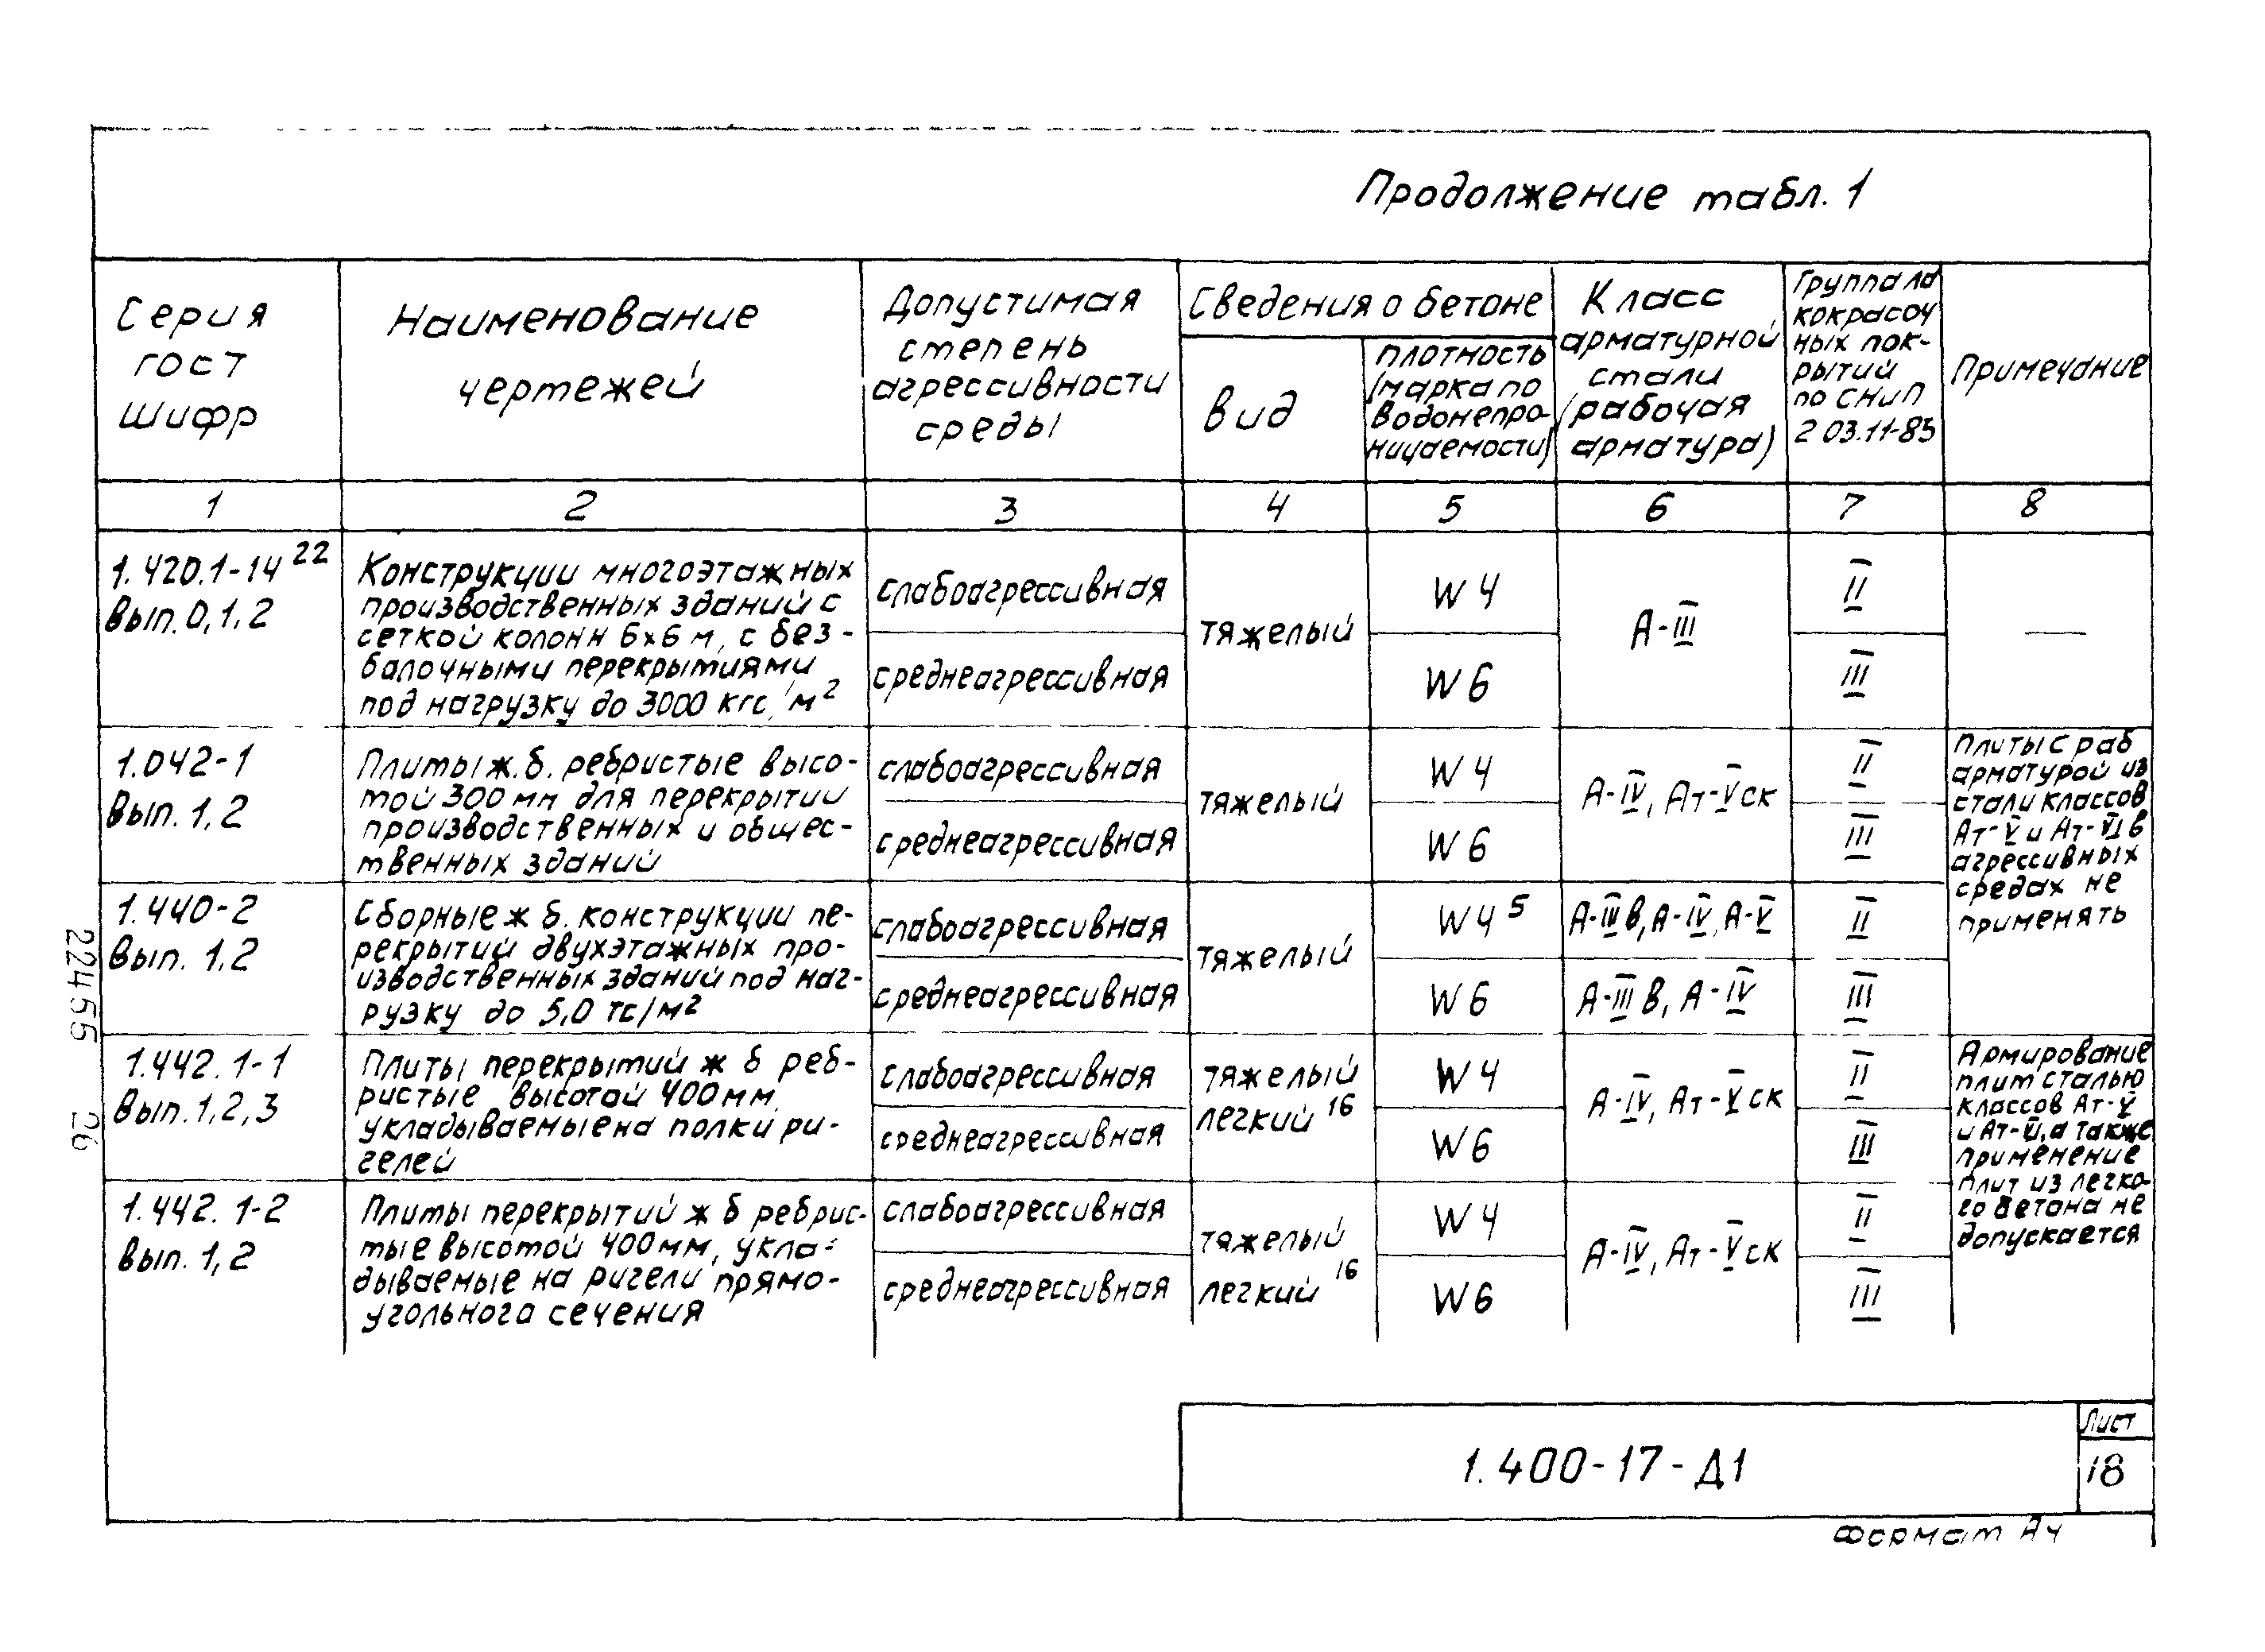 Продолжение табл. 1
Серия
ГОСТ
Шифр
Наименование
чертежей
Допустимая
степень
агрессивности
среды
Сведения о бетоне
Вид
плотность
(марка по
водонепро-
ницаемости)
Класс
арматурной
стали
(рабочая
арматура)
Группа ла
кокрасоч
ных пок-
рытий
по СНиП
2 03.11-85
Примечание
1 2 3 4 5 6 7 8
1.420.1-14 22
Вып. 0, 1, 2
Конструкции многоэтажных
производственных зданий с
сеткой колонн 6х6 м, с без-
балочными перекрытиями
под нагрузку до 3000 кгс/м2
слабоагрессивная
среднеагрессивная
тяжелый
W4
W6
А-III
II
III
—
1.042-1
Вып. 1, 2
Плиты ж.б. ребристые высо-
той 300 мм для перекрытий
производственных и общес-
твенных зданий
слабоагрессивная
среднеагрессивная
тяжелый
W4
W6
А-IV, Ат-V ск
II
III
Плиты с раб
арматурой из
стали классов
Ат-V и Ат-VI в
агрессивных
средах не
применять
1.440-2
Вып. 1,2
Сборные ж б. конструкции пе-
рекрытий двухэтажных про-
изводственных зданий под наг-
рузку до 5,0 тс/м2
слабоагрессивная
среднеагрессивная
тяжелый
W4 5
W6
А-IIIв, А-IV, А-V
А-III в, А-IV
II
III
1.442.1-1
Вып. 1, 2, 3
Плиты перекрытий ж б реб-
ристые высотой 400 мм,
укладываемые на полки ри-
гелей
слабоагрессивная
среднеагрессивная
тяжелый
легкий 16
W4
W6
А-IV, Ат-V ск
II
III
Армирование
плит сталью
классов Ат-V
и Ат-VI, а также
применение
плит из легко-
го бетона не
допускается
1.442. 1-2
Вып. 1, 2
Плиты перекрытий ж б ребрис-
тые высотой 400 мм, укла-
дываемые на ригели прямо-
угольного сечения
слабоагрессивная
среднеагрессивная
тяжелый
легкий 16
W4
W6
А-IV, Ат-V ск
II
III
22455 26
1.400-17-Д1
Лист
18
Формат А4